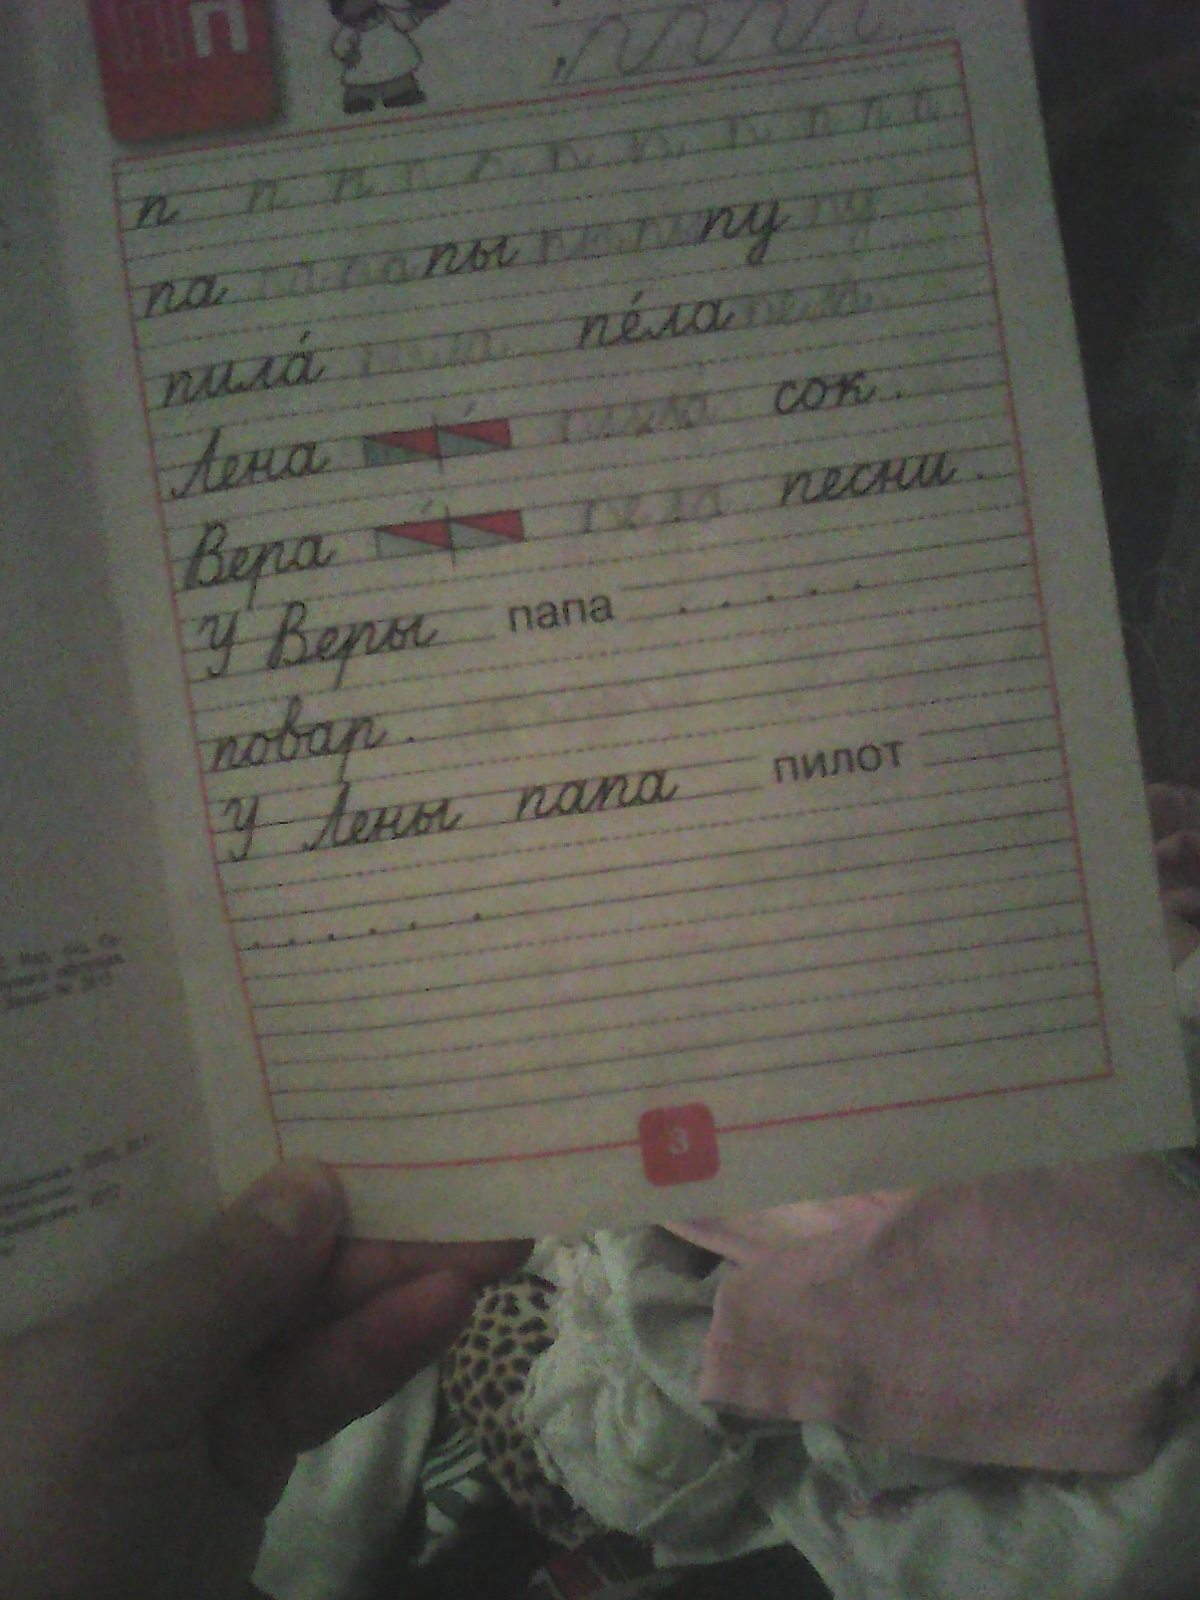 п
п п п п п п п п п п п
па па па пы пы пы пу пу
пила́ пила пе́ла пела
Лена пила сок.
Вера пела песни.
У Веры папа
повар.
У Лены папа пилот
3